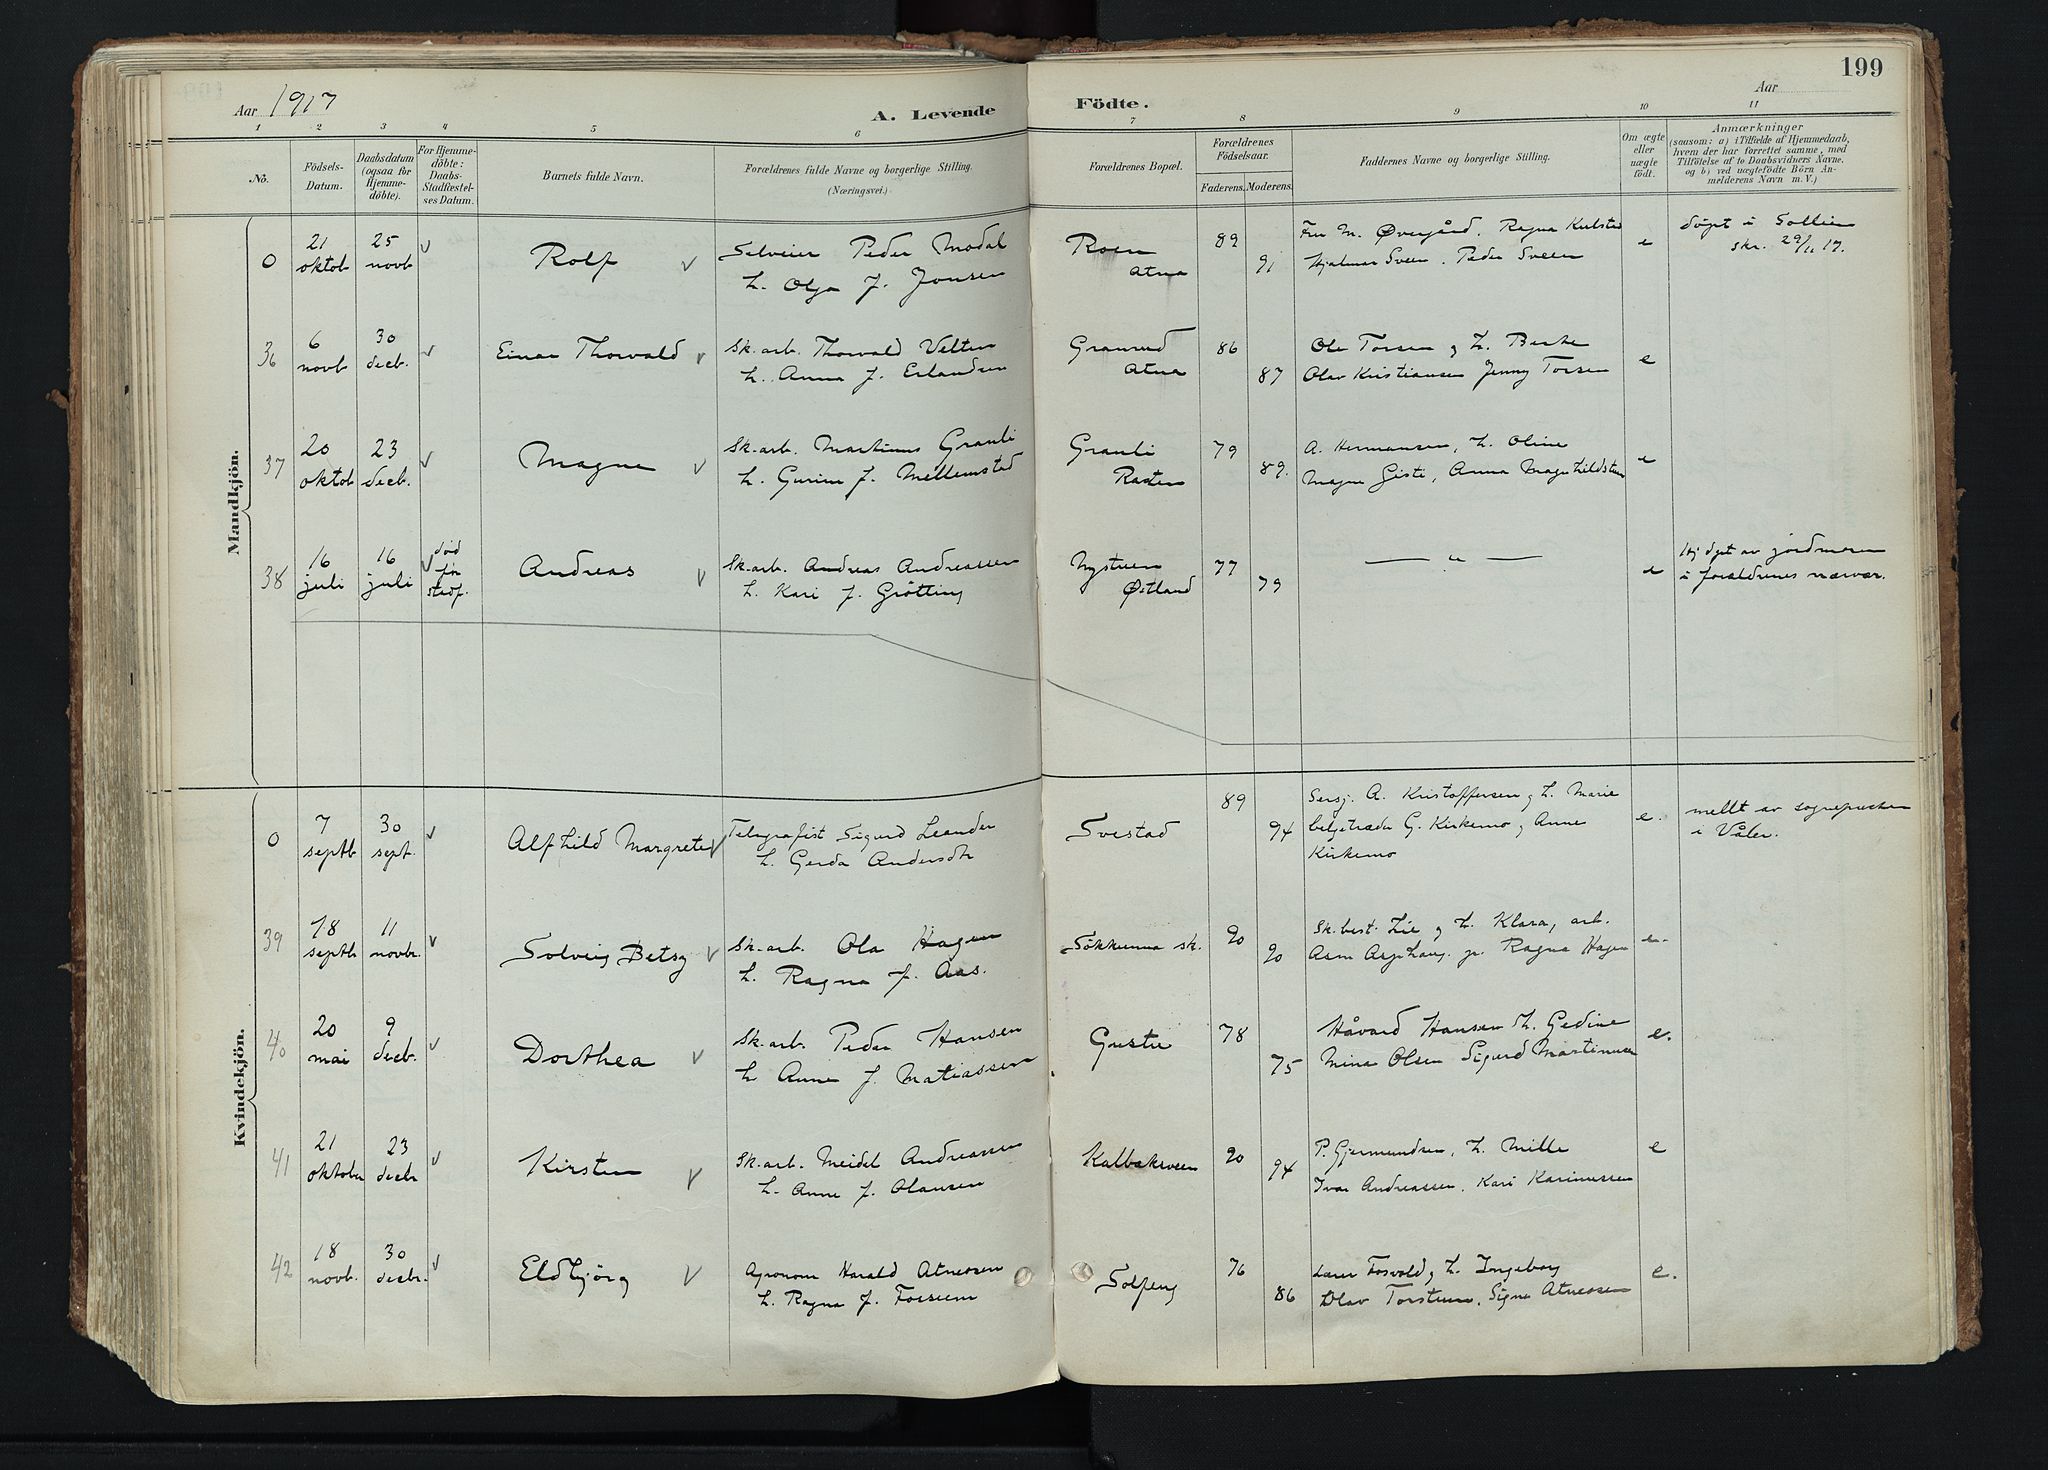 199
Aar 1917
A. Levende Födte.
Aar
1 2 3 4 5 6 7 8 9 10 11
No.
Födsels-Datum.
Daabsdatum (ogsaa for Hjemmedöbte).
For Hjemmedöbte: Daabs-Stadfæstelses Datum.
Barnets fulde Navn.
Forældrenes fulde Navne og borgerlige Stilling.
(Næringsvei.)
Forældrenes Bopæl.
Forældrenes Födselsaar.
Faderens. Moderens.
Faddernes Navne og borgerlige Stilling.
Om ægte eller uægte født.
Anmærkninger
(saasom: a) i Tilfælde af Hjemmedaab, hvem der har forrettet samme, med Tilföielse af to Daabsvidners Navne. og b) ved uægtefödte Börn Anmelderens Navn m. V.)
Mandkjön.
0 21 oktob 25 novb v Rolf v
Selveier Peder Modal
h. Olga f. Jonsen
Roen Atna 89 91
Fru M. Øvergård, Ragna
Hjalmar Sveen. Peder Sveen
e
døpt i Sollien
skr. 29/11 17.
36 6 novb 30 decb. v Einar Thorvald v
Sk.arb. Thorvald Velten
h. Anna f. Erlandsen
Granrud Atna 86 87
Ole Torsen og h. Berte
Olav Kristiansen Jenny Torsen
e
37 20 oktob 23 decb. v Magne v
Sk.arb. Martinus Granli
h. Gurine f. Mellemstad
Granli Rasten 79 89.
A. Hermansen, h. Oline
Magne Giste, Anna
e
38 16 juli 16 juli v død før stadf. Andreas v
Sk.arb. Andreas Andreassen
h. Kari f. Grötting
Nystuen Østland 77 79
— " —
e
Hj døpt av jordmoren
i forældrenes nærvær.
Kvindekjön.
0 7 septb 30 sept. v Alfhild Margrete v
Telegrafist Sigurd Leander
h. Gerda Andersdtr
Svestad 89 94
Sersj. A. Kristoffersen og h. Marie
G. Kirkemo og Anne
Kirkemo
e.
mellt av sognepresten
i Våler.
39 18 septb 11 novbr. v Solveig Betsy v
Sk.arb. Ola Hagen
h. Ragna f. Aas.
Søkkunna sk. 90 90
Sk.best. Lie og h. Klara, arb.
Asm Asphaug. pi. Ragna Hagen
e.
40 20 mai 9 decb. v Dorthea v
Sk.arb. Peder Hansen
h. Anne f. Matiassen
78 75
Håvard Hansen h. Gedine
Mina Olsen Sigurd Martinusen
e.
41 21 oktober 23 decbr v Kirsten v
Sk.arb. Meidel Andreassen
h. Anne f. Olausen
Kalbakveen 90 94
P. Gjermundsen, h. Mille
Ivar Andreassen, Kari Karinussen
e
42 18 novb. 30 decbr. v Eldbjörg v
Agronom Harald Atneosen
h. Ragna f. Forseem
Solpeng 76 86
Lærer Fosvold og h. Ingeborg
Olav Torstuen, Signe Atneosen
e.